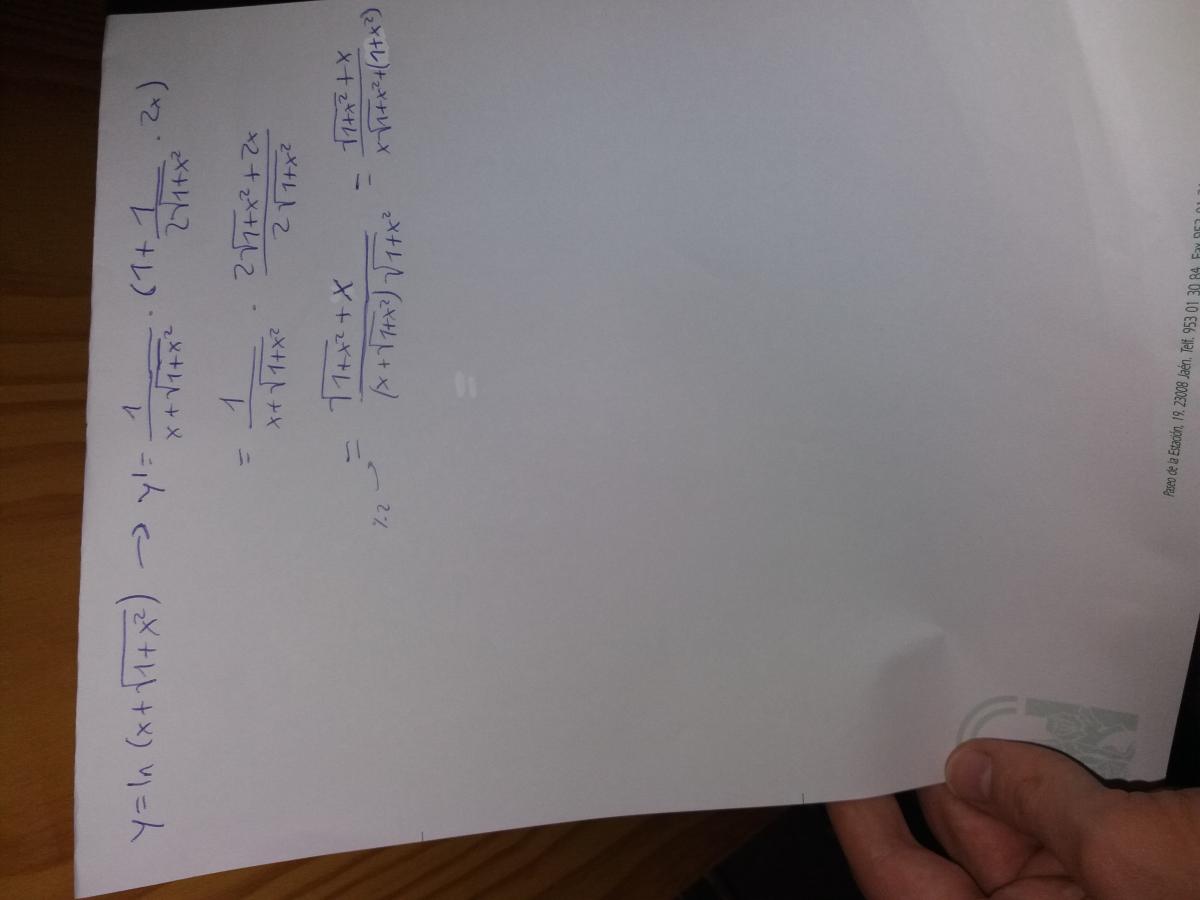 y = ln (x + √(1+x²)) → y' = 1/(x + √(1+x²)) · (1 + 1/(2√(1+x²)) · 2x)
= 1/(x + √(1+x²)) · (2√(1+x²) + 2x)/(2√(1+x²))
٪2 = (√(1+x²) + x)/((x + √(1+x²)) √(1+x²)) = (√(1+x²) + x)/(x√(1+x²) + (1+x²))
Paseo de la Estación, 19. 23008 Jaén. Telf. 953 01 30 84